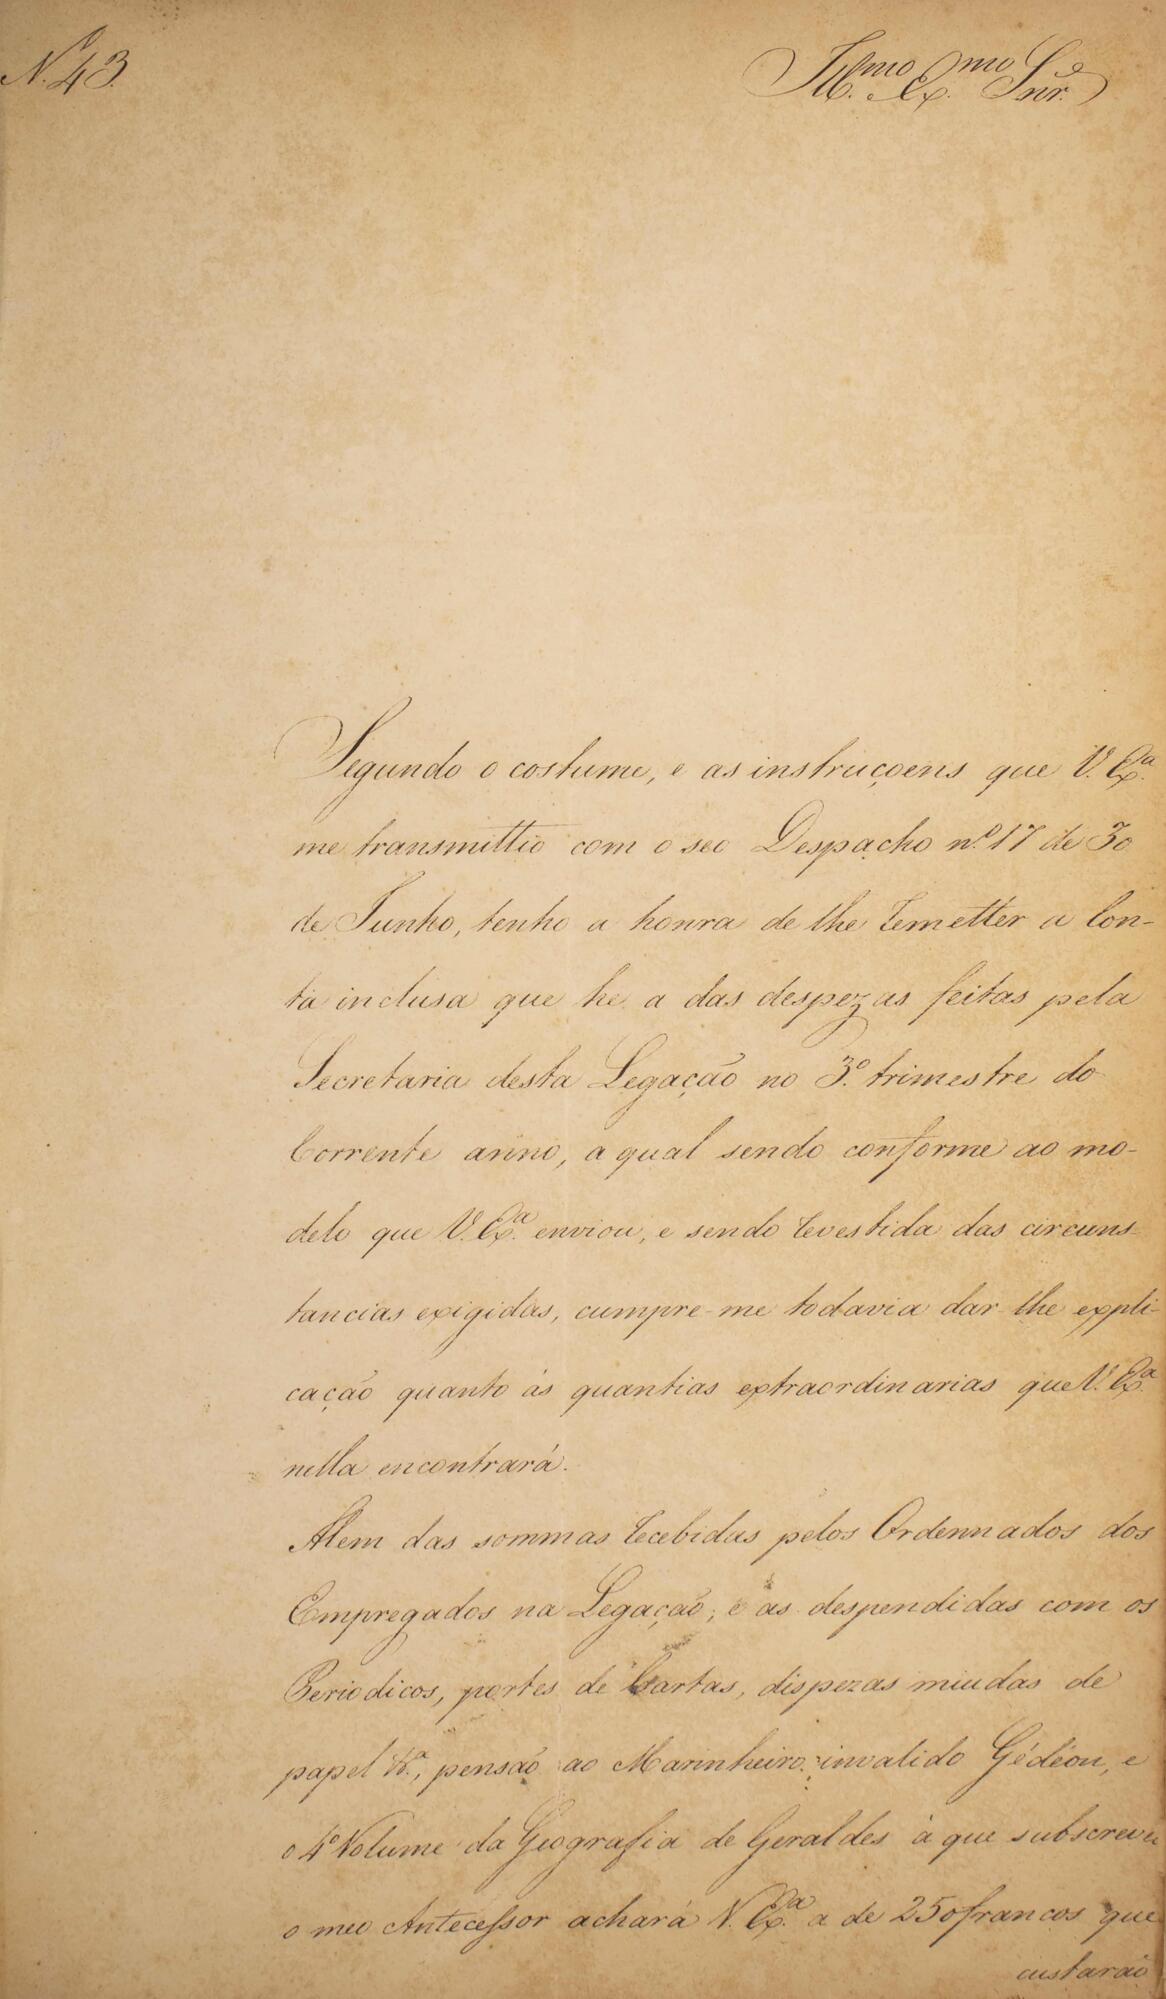 N.º 43.
Ill.mo Ex.mo Snr.
Segundo o costume, e as instrucçoens que V. Ex.ª
me transmittio com o seo Despacho n.º 17 de 30
de Junho, tenho a honra de lhe remetter a Con-
ta inclusa que he a das despezas feitas pela
Secretaria desta Legação no 3.º trimestre do
Corrente anno, a qual sendo conforme ao mo-
delo que V. Ex.ª enviou, e sendo revestida das circuns-
tancias exigidas, cumpre-me todavia dar-lhe expli-
cação quanto ás quantias extraordinarias que V. Ex.ª
nella encontrará.
Alem das sommas recebidas pelos Ordennados dos
Empregados na Legação; e as despendidas com os
Periodicos, portes de Cartas, dispezas miudas de
papel &.ª, pensão ao Marinheiro invalido Gédéon, e
o 4º Volume da Geografia de Geraldes à que subscreveu
o meu Antecessor achará V. Ex.ª a de 250 francos que
custarão